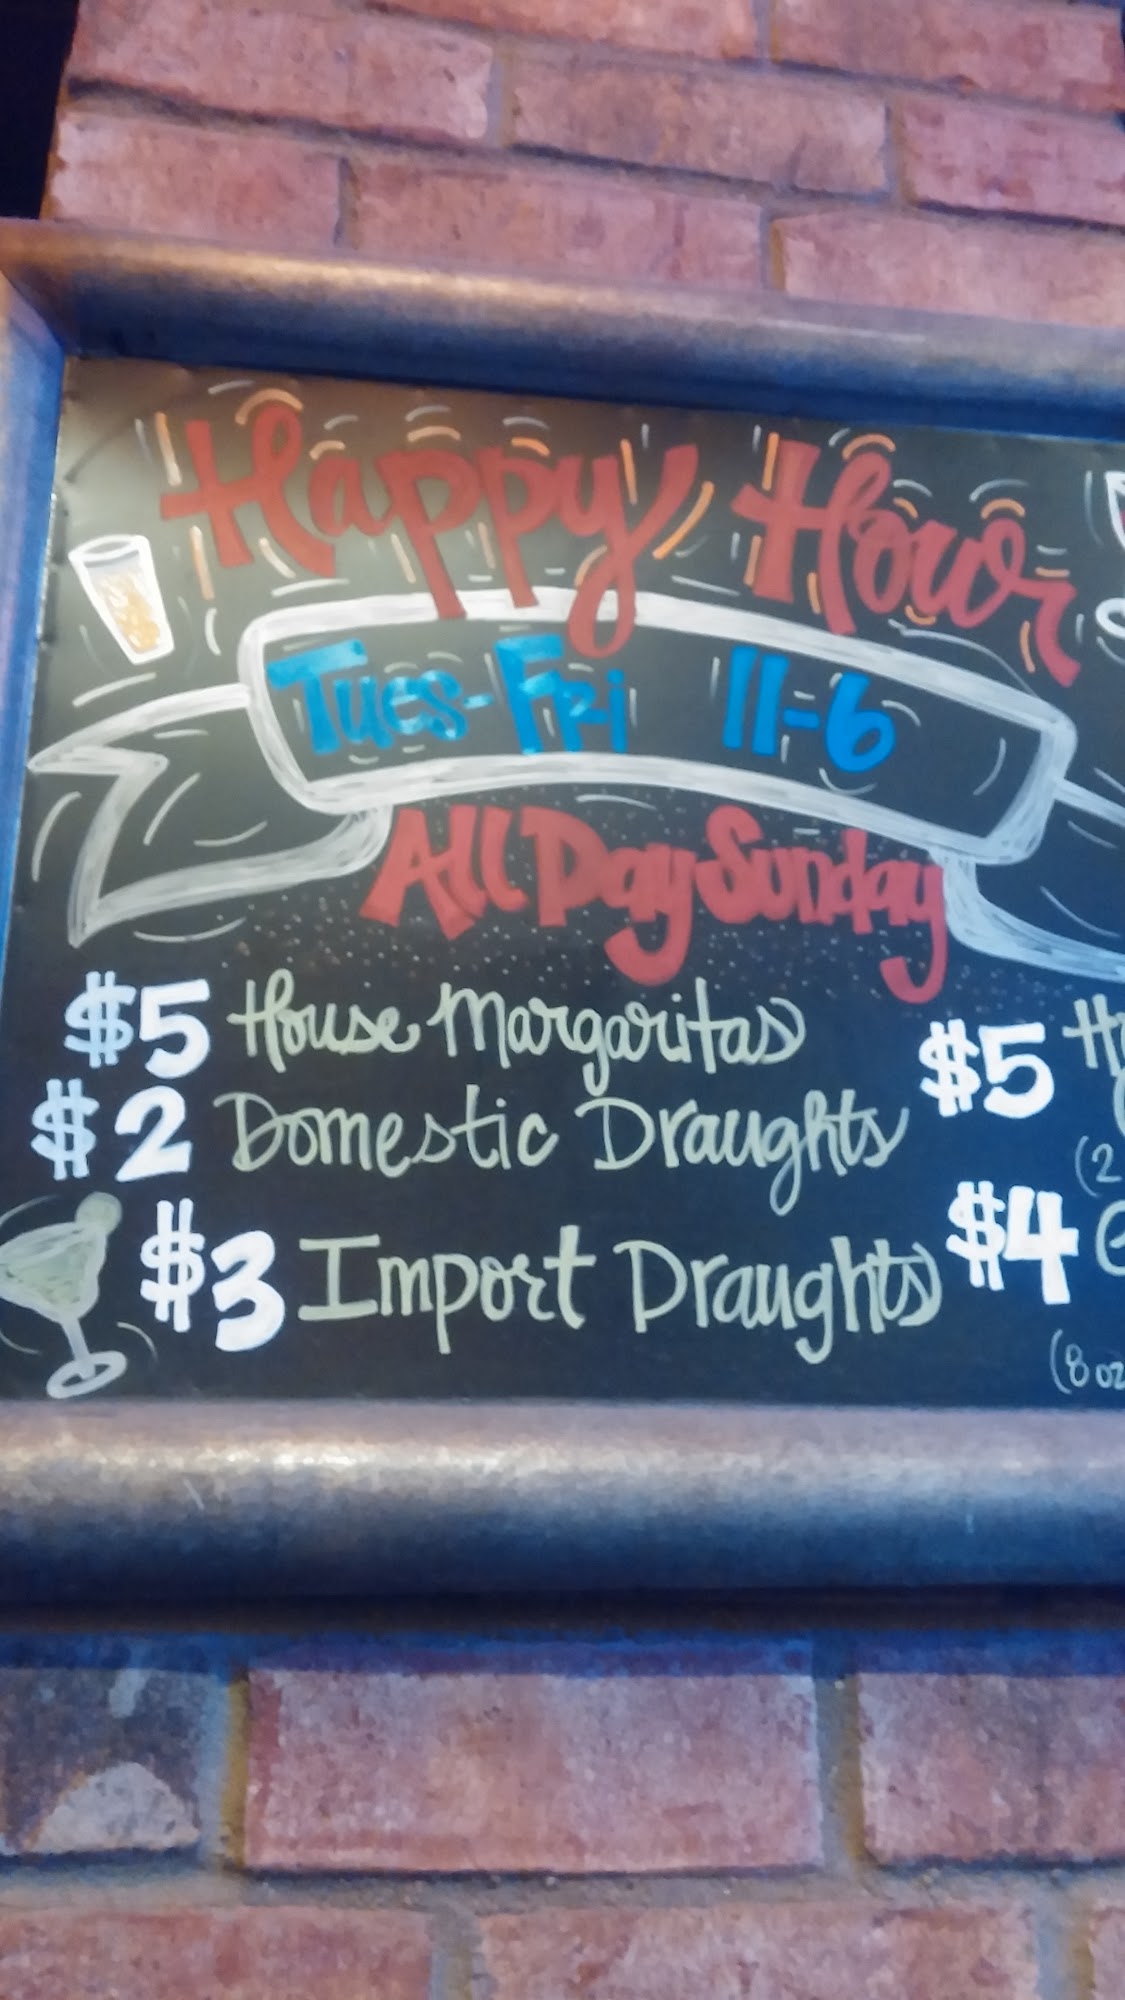 Happy Hour
Tues-Fri 11-6
All Day Sunday
$5 House Margaritas
$2 Domestic Draughts
$3 Import Draughts
$5
(2
$4
(8 oz